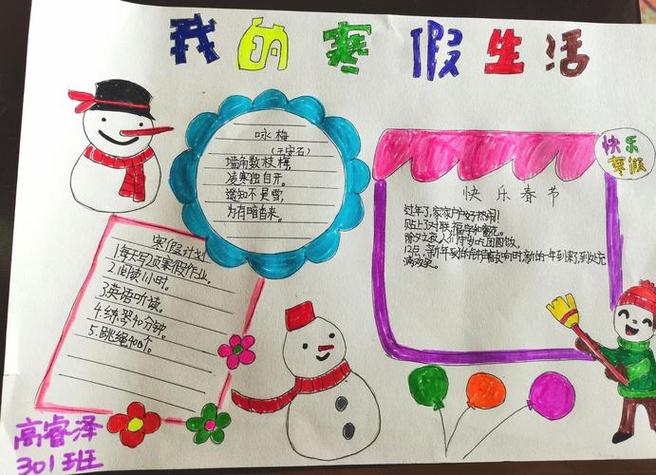 我的寒假生活
咏梅
(王安石)
墙角数枝梅,
凌寒独自开。
遥知不是雪,
为有暗香来。
寒假计划
1.每天写2项寒假作业。
2.阅读1小时。
3.英语听读。
4.练琴40分钟。
5.跳绳400个。
快乐
寒假
快乐春节
过年了,家家户户好热闹!
贴上了对联、福字和窗花。
除夕之夜,人们
吃团圆饭。
12点,新年
的钟声敲响时,新的一年到来了,到处充
满欢笑。
高睿泽
301班